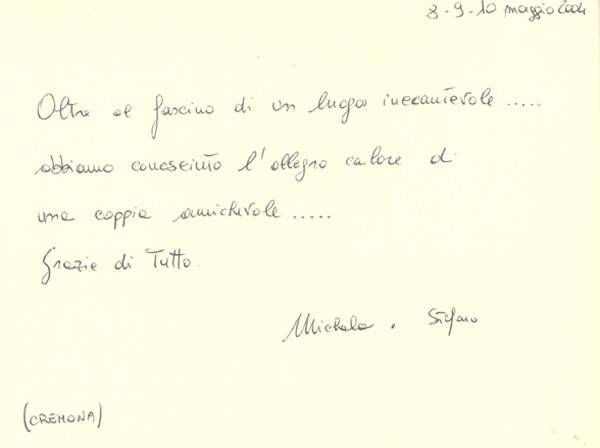 8-9-10 maggio 2004
Oltre al fascino di un luogo incantevole .....
abbiamo conosciuto l'allegro calore di
una coppia amichevole .....
Grazie di Tutto.
Michela e Stefano
(CREMONA)